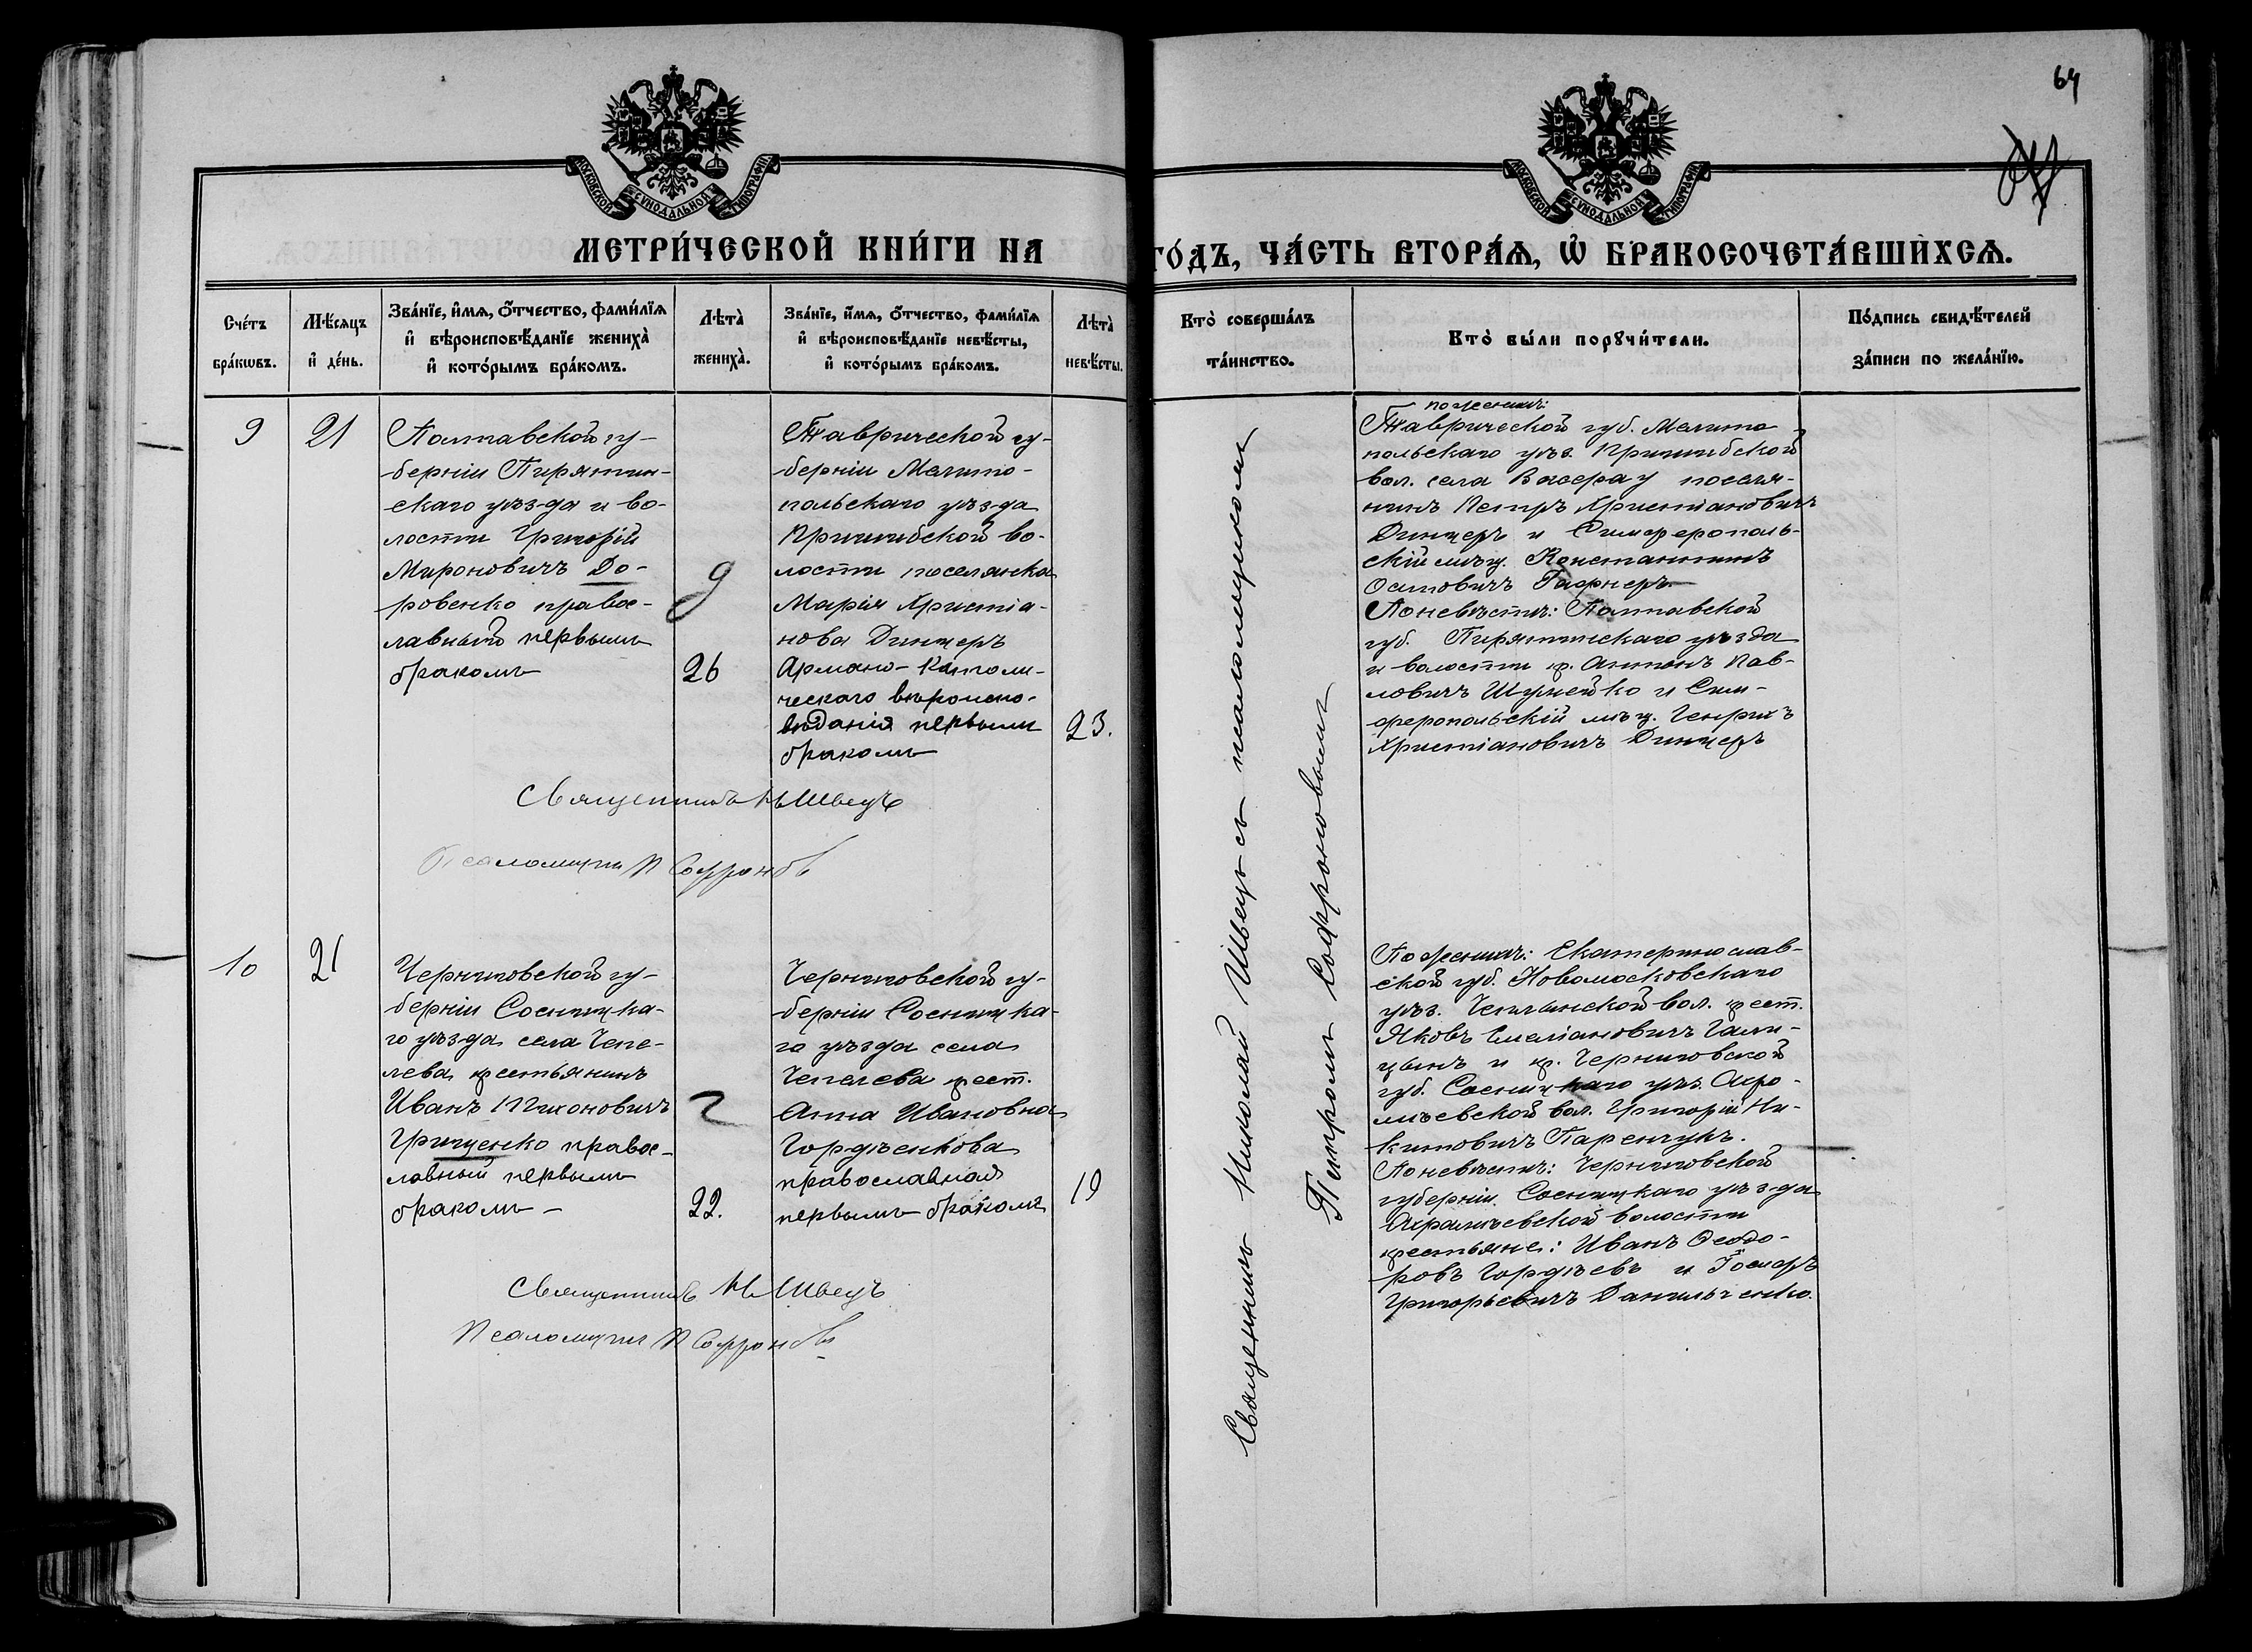 64
МОСКОВСКОЙ СУНОДАЛЬНОЙ ТИПОГРАФІИ
МОСКОВСКОЙ СУНОДАЛЬНОЙ ТИПОГРАФІИ
МЕТРИ́ЧЕСКОЙ КНИ́ГИ НА
ГО́ДЪ, ЧА́СТЬ ВТОРА́Ѧ, Ѽ БРАКОСОЧЕТА́ВШИХСѦ.
Сче́тъ
бра́кѡвъ.
Мѣ́сяцъ
и҆ де́нь.
Зва́нїе, и҆́мѧ, ѻ҆́тчество, фами́лїѧ
и҆ вѣроисповѣ́данїе жениха̀
и҆ кото́рымъ бра́комъ.
Лѣта̀
жениха̀.
Зва́нїе, и҆́мѧ, ѻ҆́тчество, фами́лїѧ
и҆ вѣроисповѣ́данїе невѣ́сты,
и҆ кото́рымъ бра́комъ.
Лѣта̀
невѣ́сты.
Кто̀ соверша́лъ
та́инство.
Кто̀ бы́ли порꙋчи́тели.
По́дпись свидѣ́телей
за́писи по жела́нїю.
9
21
Полтавской гу-
берніи Пирятин-
скаго уѣзда и во-
лости Григорій
Мироновичъ До-
ровенко правос-
лавный первымъ
бракомъ
26
Таврической гу-
берніи Мелито-
польскаго уѣзда
Пришибской во-
лости поселянка
Марія Христіа-
нова Динцеръ
Армяно-Католи-
ческаго вѣроиспо-
вѣданія первымъ
бракомъ
23.
Священникъ Н Швецъ
Псаломщикъ П Софроновъ
Священникъ Николай Швецъ съ псаломщикомъ
Петромъ Софроновымъ
по женихѣ:
Таврической губ. Мелито-
польскаго уѣз. Пришибской
вол. села Вассерау поселя-
нинъ Петръ Христіановичъ
Динцеръ и Симферополь-
скій мѣщ. Константинъ
Осиповичъ Гафнеръ.
По невѣстѣ: Полтавской
губ. Пирятинскаго уѣзда
и волости кр. Антонъ Пав-
ловичъ Шумейко и Сим-
феропольскій мѣщ. Генрихъ
Христіановичъ Динцеръ
10
21
Черниговской гу-
берніи Сосницка-
го уѣзда села Чепе-
лева крестьянинъ
Иванъ Тихоновичъ
Грищенко правос-
лавный первымъ
бракомъ -
22.
Черниговской гу-
берніи Сосницка-
го уѣзда села
Чепелева крест.
Анна Ивановна
Гордѣенкова
православная
первымъ бракомъ
19
Священникъ Н Швецъ
Псаломщикъ П Софроновъ
По женихѣ: Екатеринослав-
ской губ. Новомосковскаго
уѣз. вол. крест.
Яковъ Емеліановичъ Гали-
цынъ и кр. Черниговской
губ. Сосницкаго уѣз. Охро-
мѣевской вол. Григорій Ни-
китовичъ Паренчукъ.
По невѣстѣ: Черниговской
губерніи Сосницкаго уѣзда
Охрамѣевской волости
крестьяне: Иванъ Ѳеодо-
ровъ Гордѣевъ и Іосифъ
Григорьевичъ Данильченко.